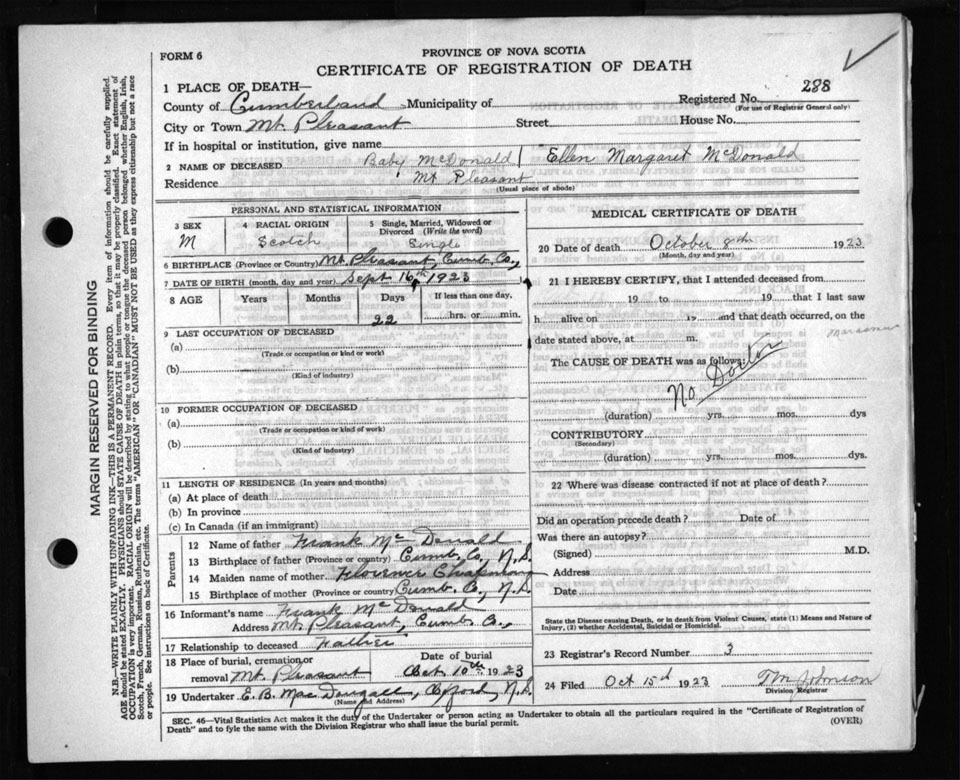 FORM 6
PROVINCE OF NOVA SCOTIA
CERTIFICATE OF REGISTRATION OF DEATH
1 PLACE OF DEATH—
County of Cumberland Municipality of
Registered No. 288
(For use of Registrar General only)
City or Town Mt. Pleasant Street House No.
If in hospital or institution, give name
2 NAME OF DECEASED Baby McDonald | Ellen Margaret McDonald
Residence Mt Pleasant
(Usual place of abode)
PERSONAL AND STATISTICAL INFORMATION
3 SEX 4 RACIAL ORIGIN 5 Single, Married, Widowed or Divorced (Write the word)
M Scotch Single
6 BIRTHPLACE (Province or Country) Mt. Pleasant, Cumb. Co.,
7 DATE OF BIRTH (month, day and year) Sept 16th 1923
8 AGE Years Months Days If less than one day,
22 hrs. or min.
9 LAST OCCUPATION OF DECEASED
(a)
(Trade or occupation or kind or work)
(b)
(Kind of industry)
10 FORMER OCCUPATION OF DECEASED
(a)
(Trade or occupation or kind or work)
(b)
(Kind of industry)
11 LENGTH OF RESIDENCE (In years and months)
(a) At place of death
(b) In province
(c) In Canada (if an immigrant)
Parents
12 Name of father Frank McDonald
13 Birthplace of father (Province or country) Cumb. Co., N.S.
14 Maiden name of mother Florence Chapman
15 Birthplace of mother (Province or country) Cumb. Co., N.S.
16 Informant's name Frank McDonald
Address Mt. Pleasant, Cumb. Co.,
17 Relationship to deceased Father
18 Place of burial, cremation or removal Mt. Pleasant
Date of burial
Oct. 10th 1923
19 Undertaker E. B. MacDougall, Oxford, N.S.
(Name and Address)
MEDICAL CERTIFICATE OF DEATH
20 Date of death October 8th 1923
(Month, day and year)
21 I HEREBY CERTIFY, that I attended deceased from
19 to 19 that I last saw
h alive on 19 and that death occurred, on the
date stated above, at m.
Marasmus
The CAUSE OF DEATH was as follows:
No Doctor
(duration) yrs. mos. dys
CONTRIBUTORY
(Secondary)
(duration) yrs. mos. dys.
22 Where was disease contracted if not at place of death?
Did an operation precede death? Date of
Was there an autopsy?
(Signed) M.D.
Address
Date
State the Disease causing Death, or in death from Violent Causes, state (1) Means and Nature of Injury, (2) whether Accidental, Suicidal or Homicidal.
23 Registrar's Record Number 3
24 Filed Oct 15th 1923 Johnson
Division Registrar
SEC. 46—Vital Statistics Act makes it the duty of the Undertaker or person acting as Undertaker to obtain all the particulars required in the "Certificate of Registration of
Death" and to fyle the same with the Division Registrar who shall issue the burial permit.
(OVER)
MARGIN RESERVED FOR BINDING
N.B.—WRITE PLAINLY WITH UNFADING INK—THIS IS A PERMANENT RECORD. Every item of information should be carefully supplied.
AGE should be stated EXACTLY. PHYSICIANS should STATE CAUSE OF DEATH in plain terms, so that it may be properly classified. Exact statement of
OCCUPATION is very important. RACIAL ORIGIN will be described by stating to what people or tongue the deceased person belonged whether English, Irish,
Scotch, French, German, Russian, Ruthenian, etc. The terms "AMERICAN" or "CANADIAN" MUST NOT BE USED as they express citizenship but not a race
or people. See instructions on back of Certificate.